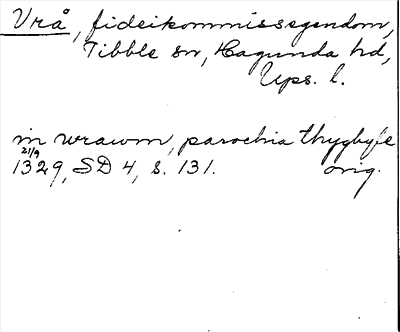 Vrå, fideikommissegendom,
Tibble sn, Hagunda hd,
Ups. l.
in wrawm, parochia thygbyle
21/9
1329, SD 4, s. 131. orig.